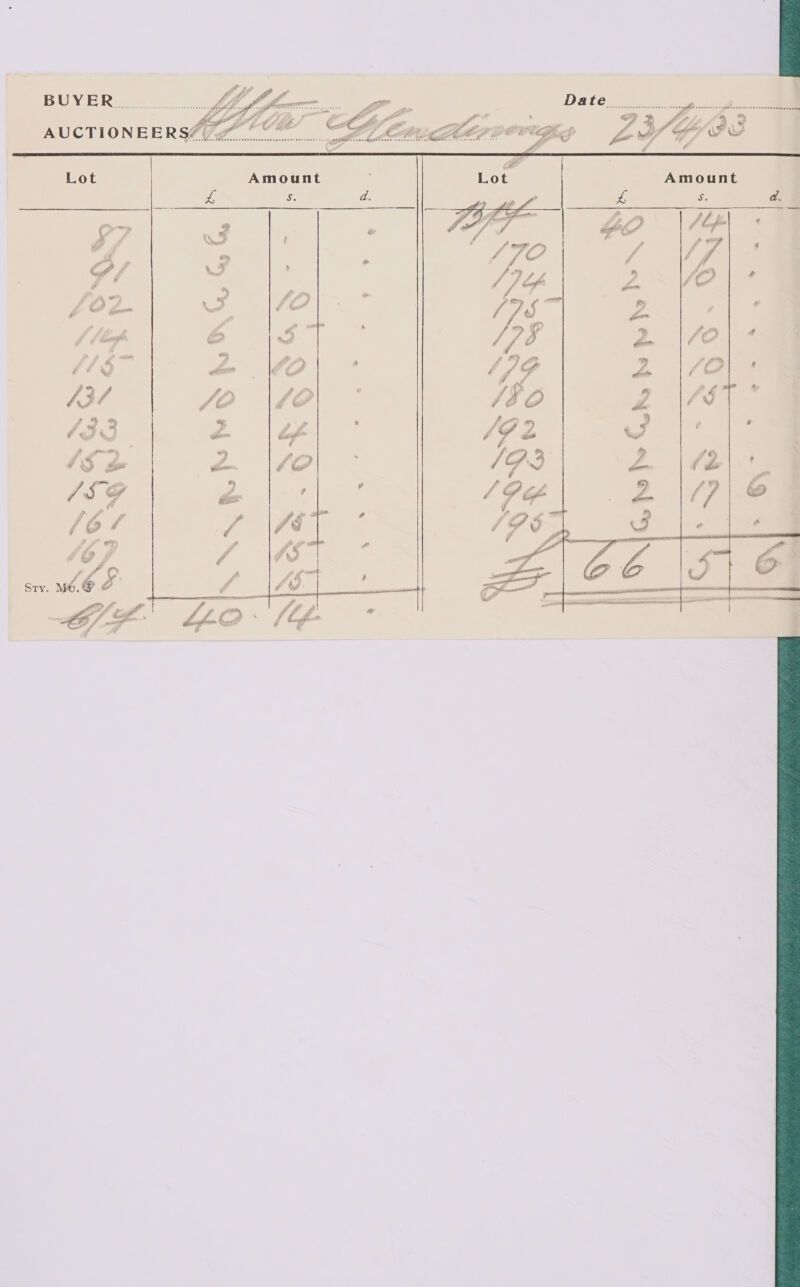 BUYER Date
AUCTIONEERS Glendinings 23/4/33
Lot Amount Lot Amount
£ s. d. £ s. d.
87 3 . . B/f 40 14 .
91 3 . . 170 1 17 .
102 3 10 . 174 2 10 .
114 6 5 . 175 2 . .
115 2 10 . 178 2 10 .
131 10 10 . 179 2 10 .
133 2 4 . 180 2 15 .
152 2 10 . 192 3 . .
159 2 . . 193 2 12 .
161 1 15 . 194 2 17 6
167 1 15 . 195 3 . .
Sty. Mo. 168 1 15 . £ 66 5 6
C/f 40 14 .